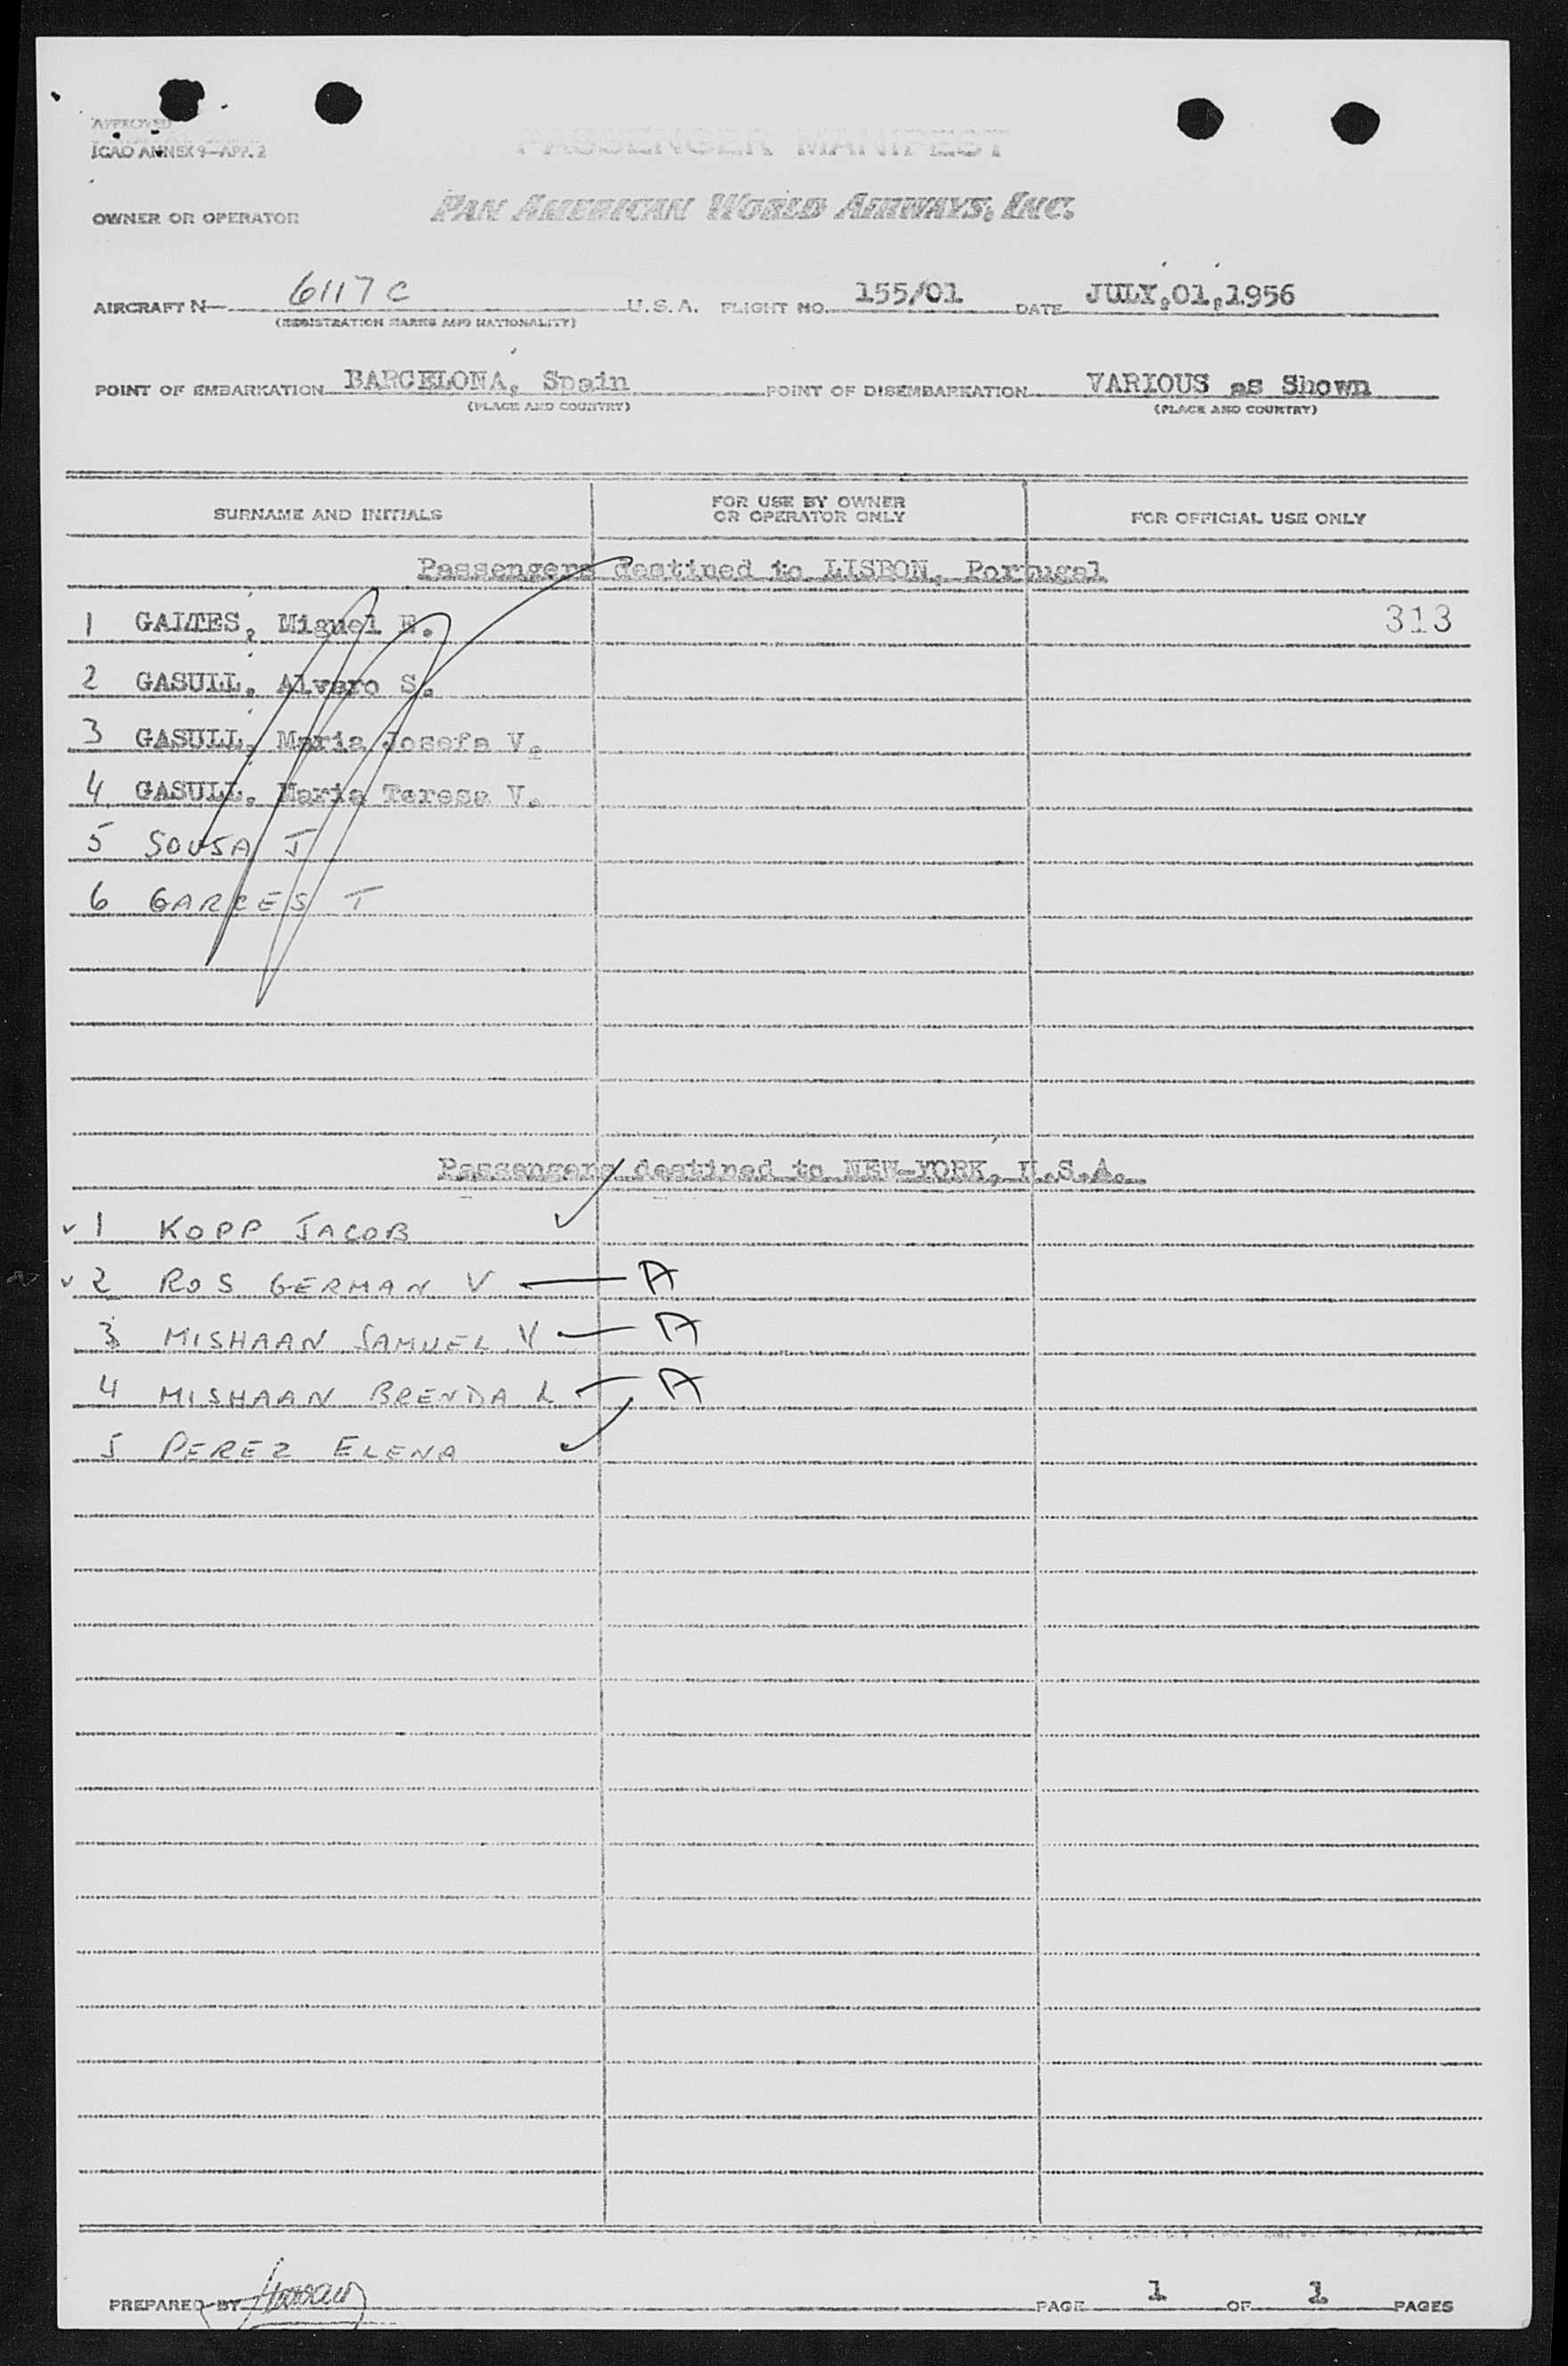 APPROVED
ICAO ANNEX 9—APP. 2
PASSENGER MANIFEST
OWNER OR OPERATOR PAN AMERICAN WORLD AIRWAYS, INC.
AIRCRAFT N— 6117C U.S.A. FLIGHT NO. 155/01 DATE JULY,01,1956
(REGISTRATION MARKS AND NATIONALITY)
POINT OF EMBARKATION BARCELONA, Spain POINT OF DISEMBARKATION VARIOUS as Shown
(PLACE AND COUNTRY) (PLACE AND COUNTRY)
SURNAME AND INITIALS FOR USE BY OWNER OR OPERATOR ONLY FOR OFFICIAL USE ONLY
Passengers destined to LISBON, Portugal
1 GALTES, Miguel E. 313
2 GASULL, Alvaro S.
3 GASULL, Maria Josefa V.
4 GASULL, Maria Teresa V.
5 SOUSA J
6 GARCES T
Passengers destined to NEW-YORK, U.S.A.
1 KOPP JACOB
2 ROS GERMAN V — A
3 MISHAAN SAMUEL V — A
4 MISHAAN BRENDA L — A
5 PEREZ ELENA
PREPARED BY PAGE 1 OF 1 PAGES